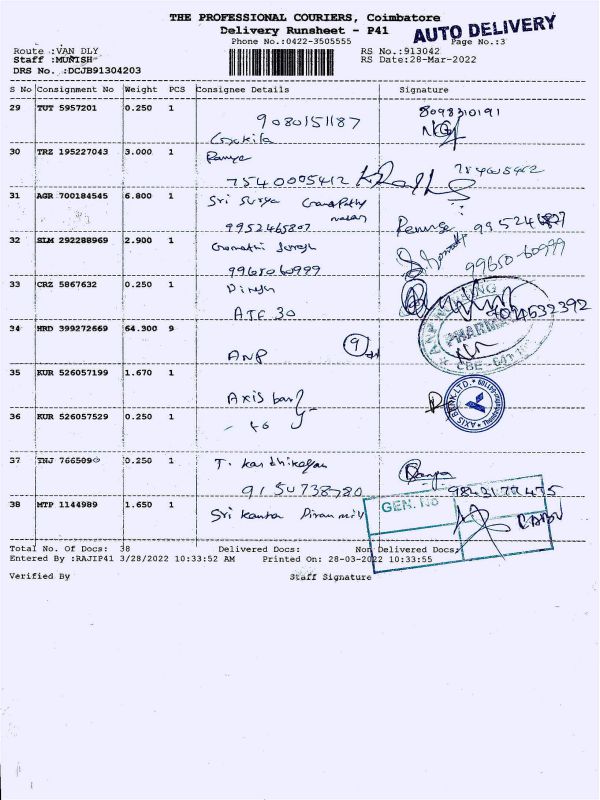 THE PROFESSIONAL COURIERS, Coimbatore
Delivery Runsheet - P41
AUTO DELIVERY
Phone No.:0422-3505555
Page No.:3
Route :VAN DLY
RS No.:913042
Staff :MUNISH
RS Date:28-Mar-2022
DRS No. :DCJB91304203
S No Consignment No Weight PCS Consignee Details Signature
29 TUT 5957201 0.250 1
9080151187
8098310191
Gokila
30 TRZ 195227043 3.000 1 Ramya
7540005412
31 AGR 700184545 6.800 1 Sri Surya
9952465807
32 SLM 292288969 2.900 1 Gomathi Suresh
9965060999
99650-60999
33 CRZ 5867632 0.250 1 Dinesh
ATE 30
34 HRD 399272669 64.300 9
ANP
9
PHARMA
CBE
35 KUR 526057199 1.670 1
Axis bank
AXIS BANK LTD.
36 KUR 526057529 0.250 1
37 TNJ 766509 0.250 1 T. Karthikeyan
9150738780
Ramya
38 MTP 1144989 1.650 1 Sri Kanta
GEN. No
Total No. Of Docs: 38 Delivered Docs: Non Delivered Docs:
Entered By :RAJIP41 3/28/2022 10:33:52 AM Printed On: 28-03-2022 10:33:55
Verified By Staff Signature